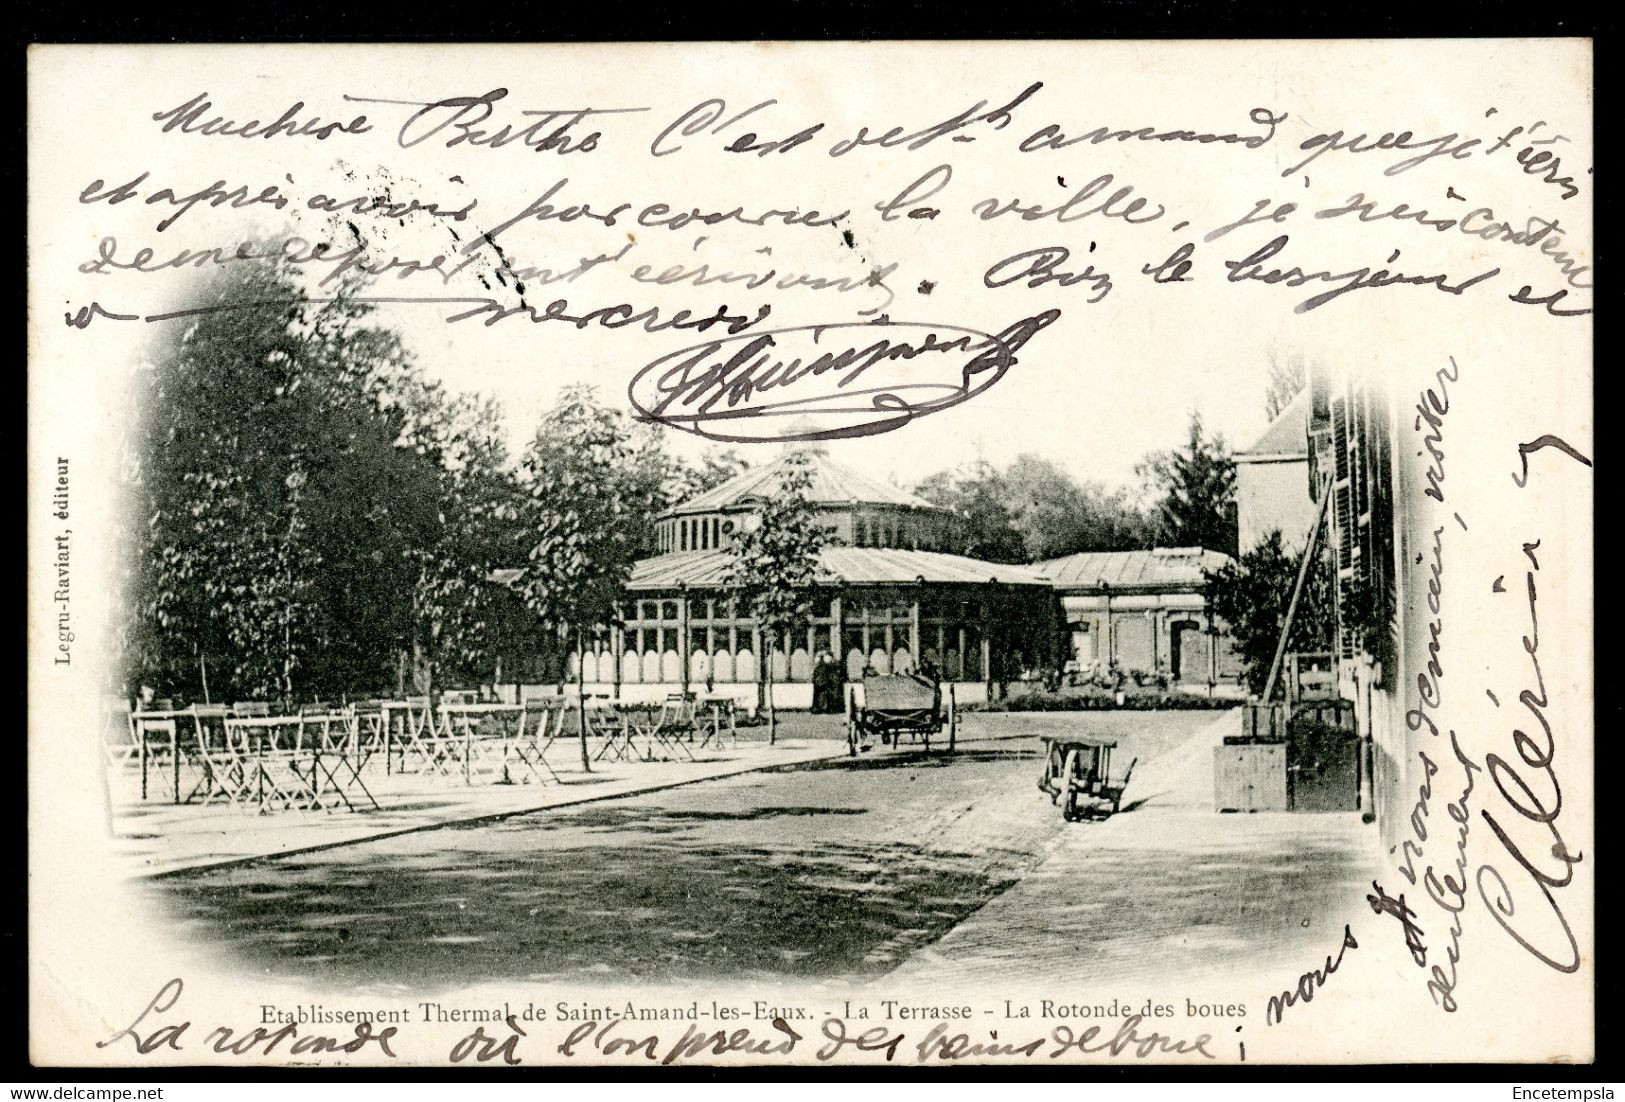 Machère Berthe C'est de St amand que je t'écris
et après avoir parcouru la ville, je suis content
de me reposer en t'écrivant. Bien le bonjour et
a mercredi
Legru-Raviart, éditeur
Etablissement Thermal de Saint-Amand-les-Eaux. - La Terrasse - La Rotonde des boues
La rotonde où l'on prend des bains de boue;
nous irons demain, visiter
seulement
Encetempsla